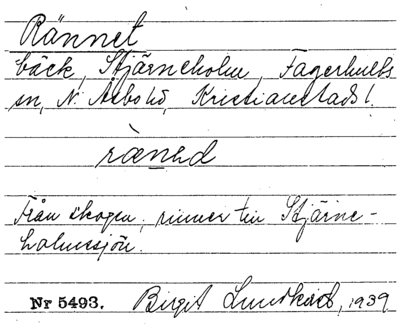 Rännet
bäck, Stjärneholm, Fagerhults
sn, N. Åsbo hd, Kristianstads l.
ræned
Från skogen, rinner till Stjärne-
holmssjön.
Nr 5493. Birgit 1939